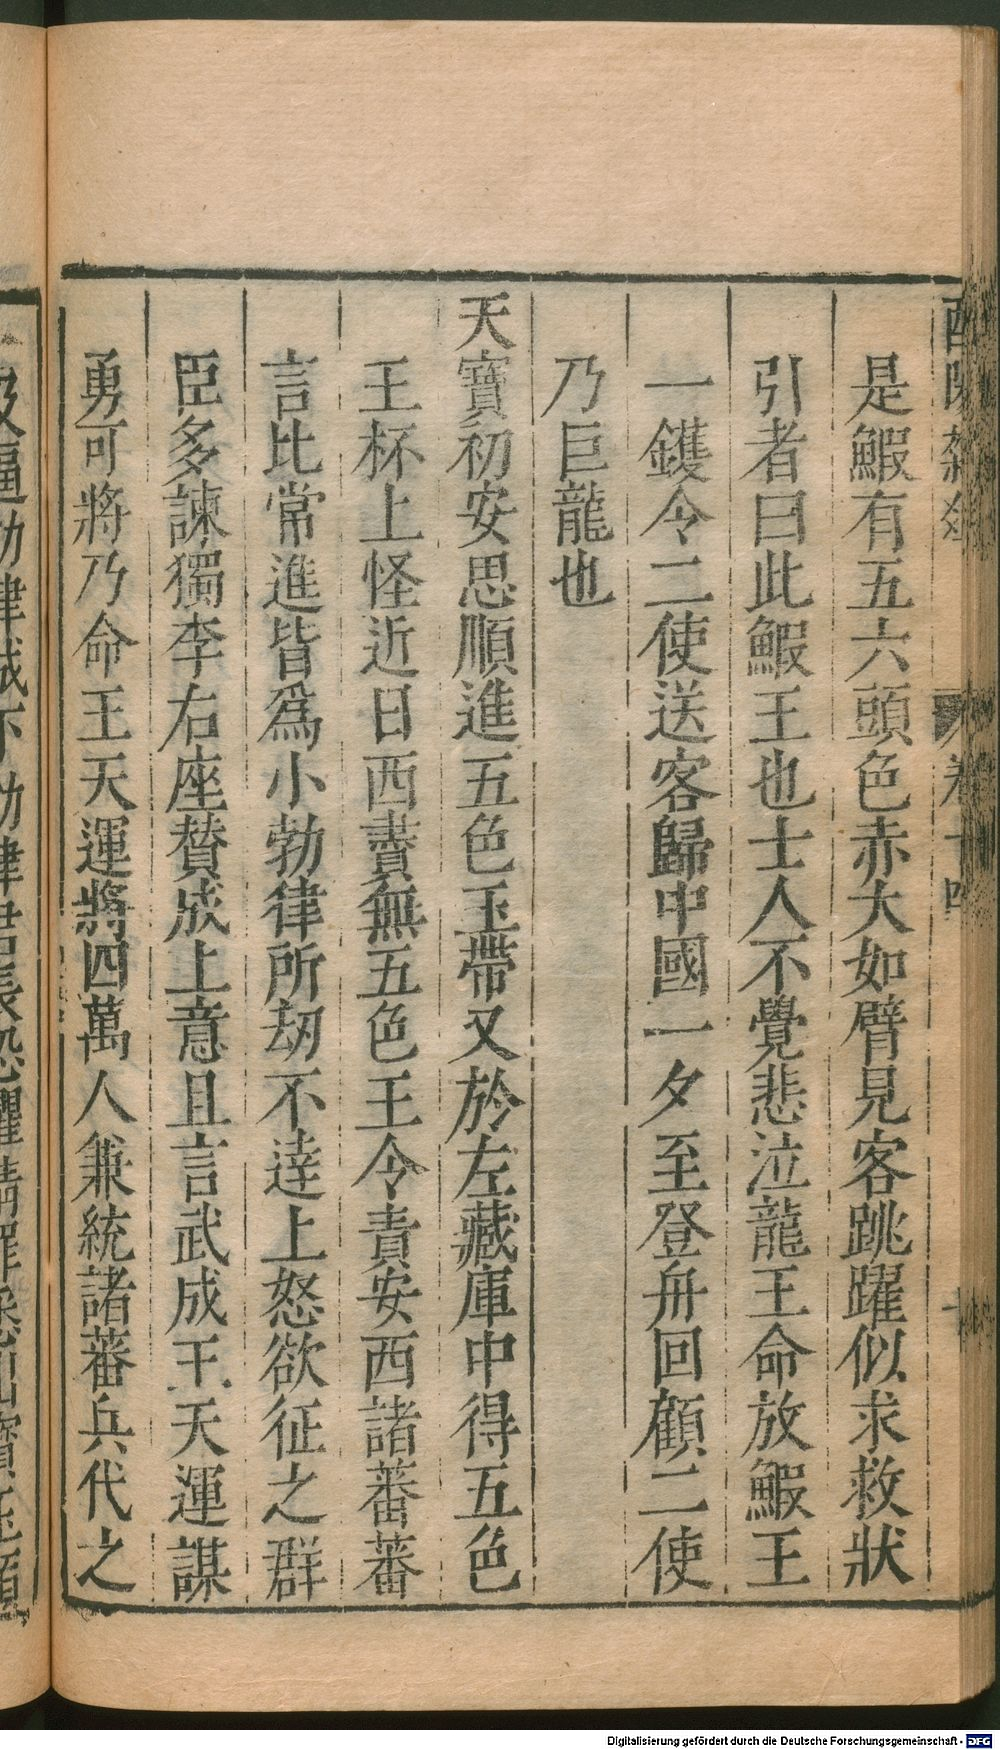 酉陽雜俎 卷十四 十
是鰕有五六頭色赤大如臂見客跳躍似求救狀
引者曰此鰕王也士人不覺悲泣龍王命放鰕王
一鑊令二使送客歸中國一夕至登舟回顧二使
乃巨龍也
天寶初安思順進五色玉帶又於左藏庫中得五色
王杯上怪近日西賮無五色王令責安西諸蕃蕃
言比常進皆爲小勃律所刼不達上怒欲征之群
臣多諫獨李右座賛成上意且言武成王天運謀
勇可將乃命王天運將四萬人兼統諸蕃兵代之
及逼勃律城下勃律君長恐懼請罪
Digitalisierung gefördert durch die Deutsche Forschungsgemeinschaft - DFG